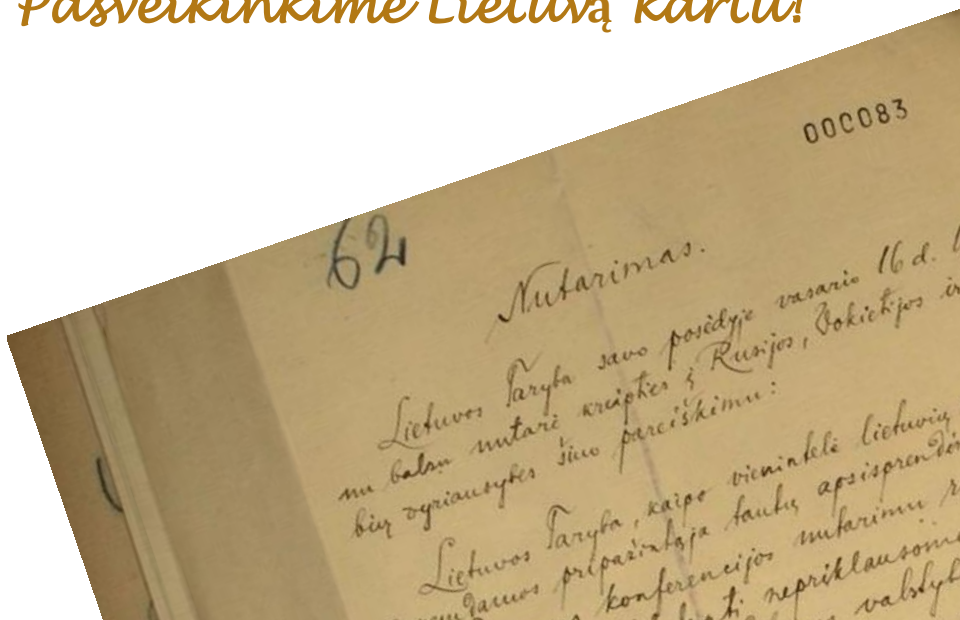 Pasveikinkime Lietuvą kartu!
000083
62
Nutarimas.
Lietuvos Taryba savo posėdyje vasario 16 d.
nu balsu nutarė kreipties į Rusijos, Vokietijos ir
bių vyriausybes šiuo pareiškimu:
Lietuvos Taryba, kaipo vienintelė lietuvių
pripažintąja tautų apsisprendi
konferencijos nutarimu
nepriklausomą
valstyb